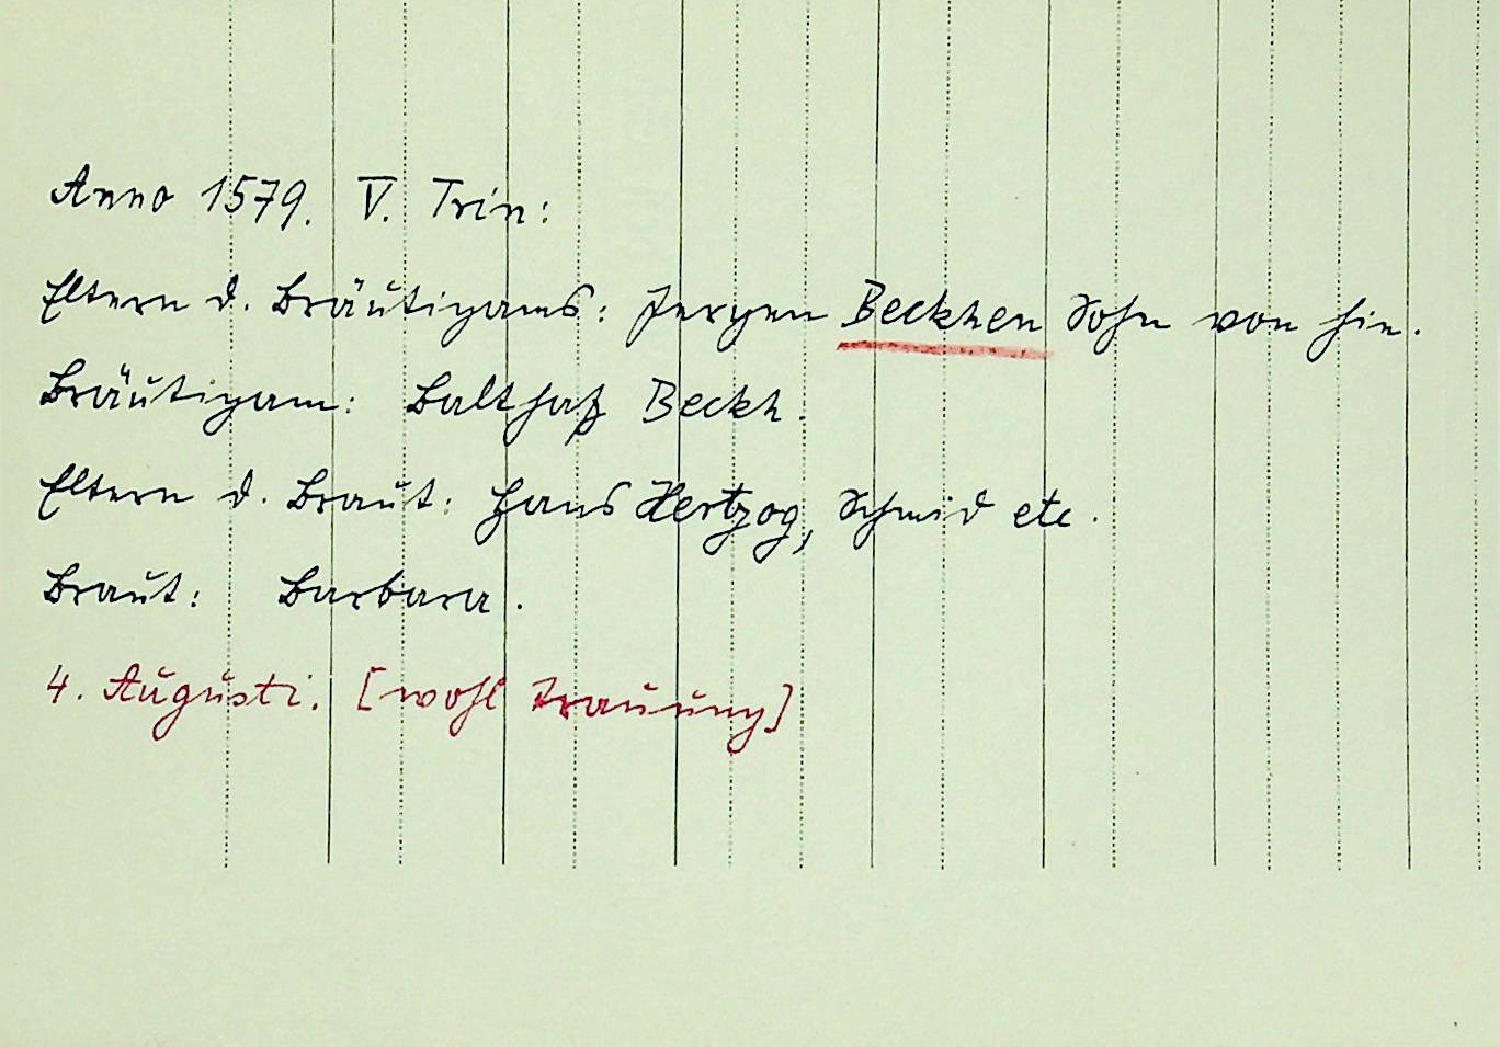 Anno 1579. V. Trin:
Eltern d. Bräutigams: Jergen Beckhen Sohn von hie.
Bräutigam: Balthaß Beckh.
Eltern d. Braut: Hans Hertzog, Schmid etc.
Braut: Barbara.
4. Augusti. [wohl Trauung]